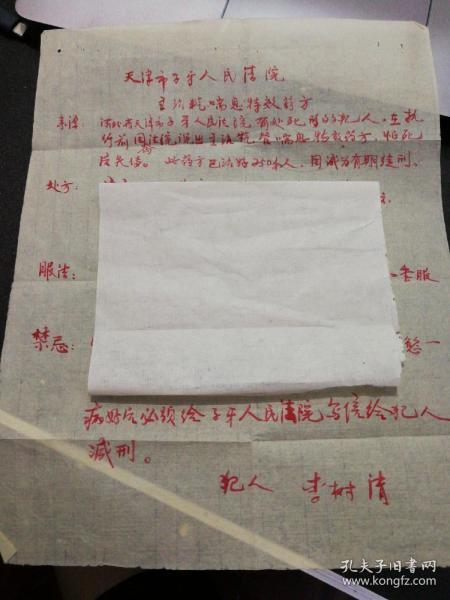 天津市子牙人民法院
主治气喘息特效药方
来源：河北省天津市子牙人民法院有处死刑的犯人，在执
行前向法院说出主治气管喘息特效药方，怕死
后失传。此药方已治好250人，因减为有期徒刑。
处方：
服法： 一季服
禁忌：
病好后必须给子牙人民法院写信给犯人
减刑。
犯人 李树清
孔夫子旧书网
www.kongfz.com